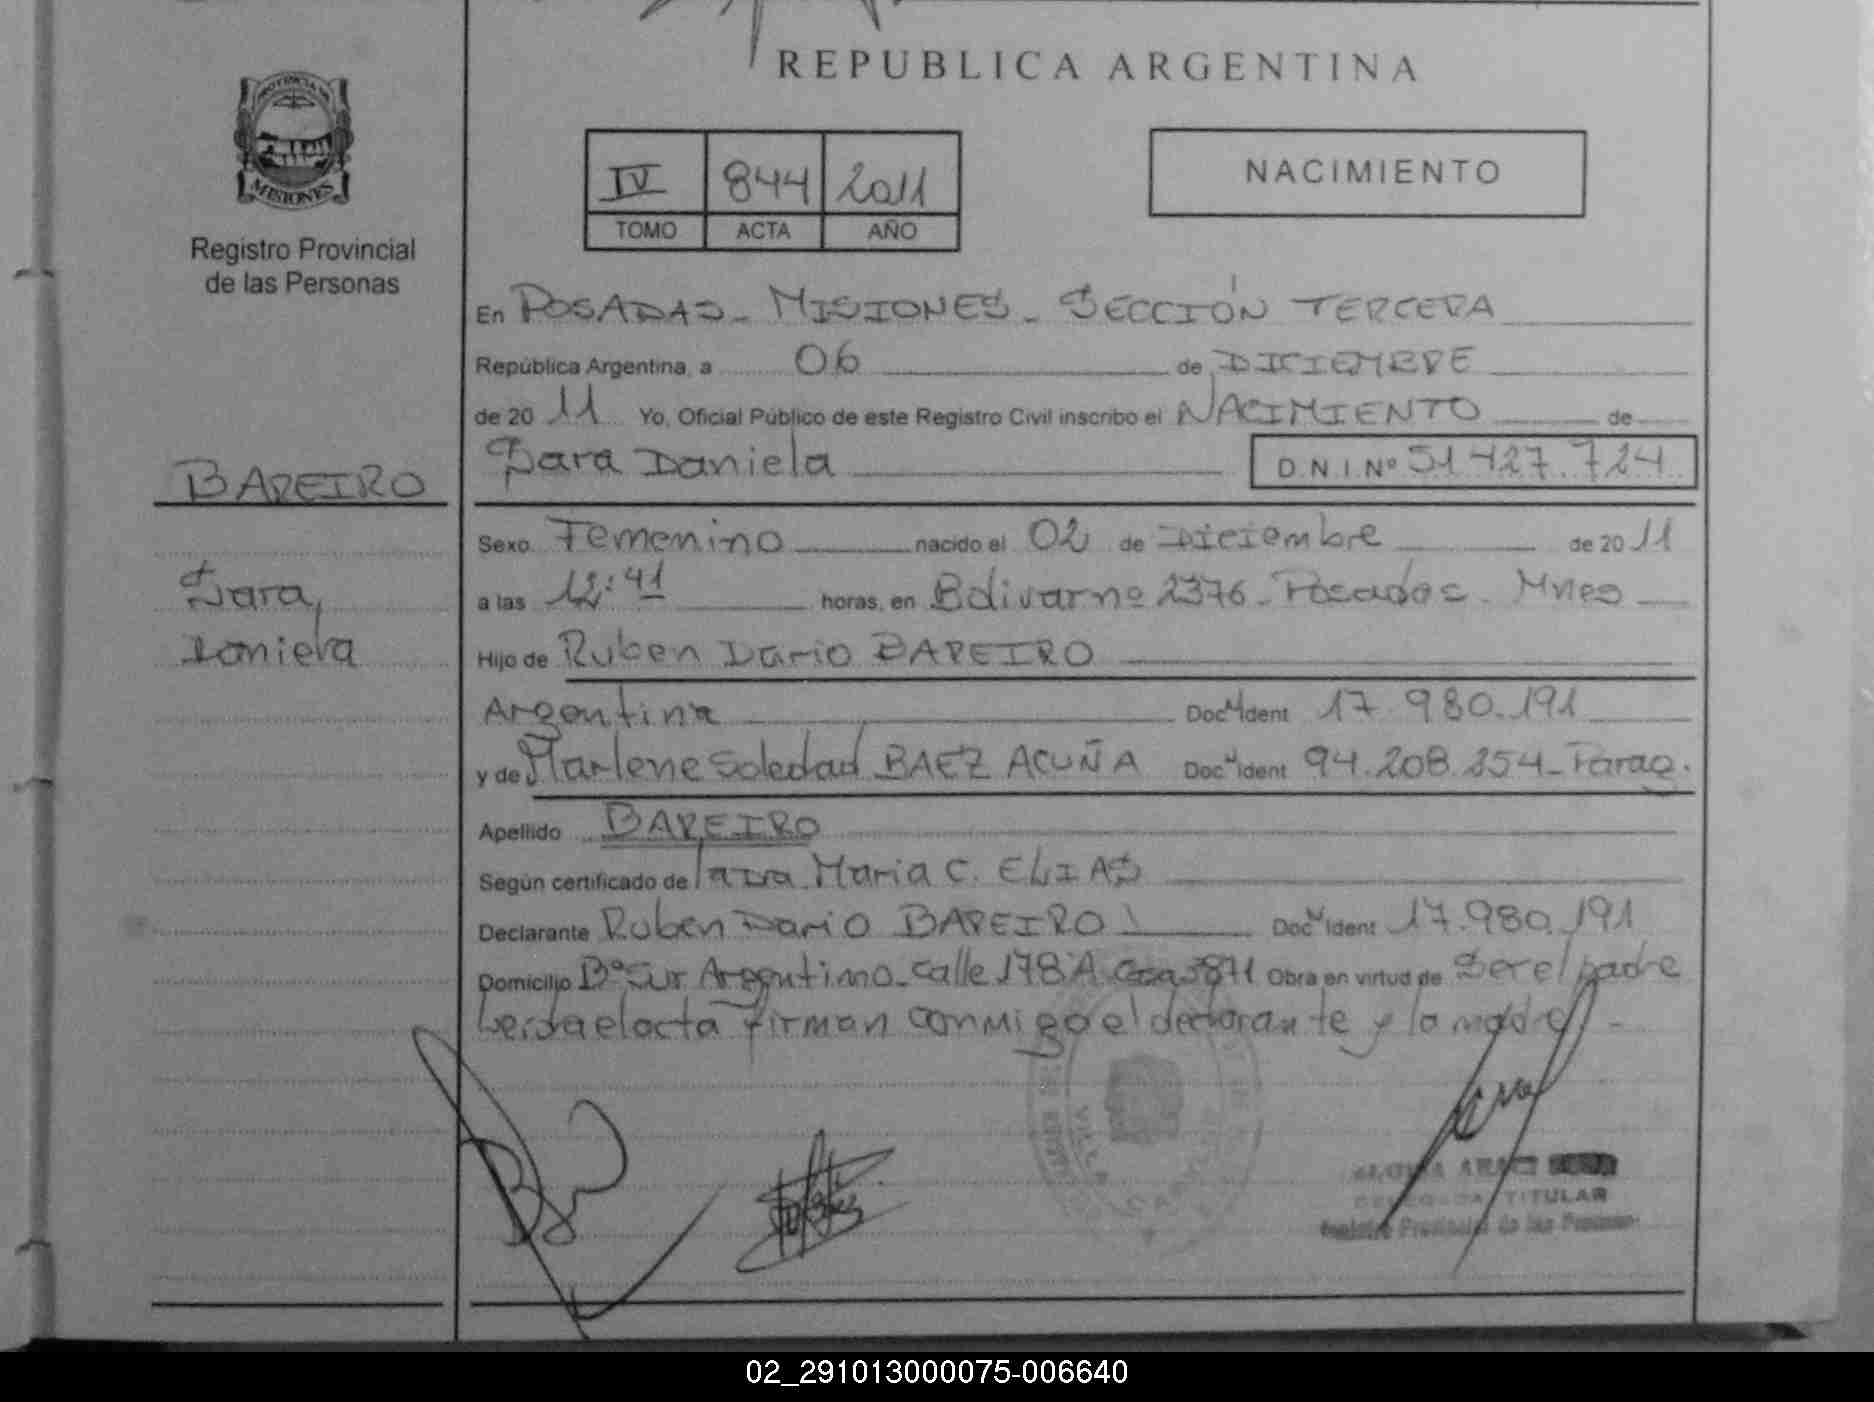 REPUBLICA ARGENTINA
PROVINCIA DE
MISIONES
Registro Provincial
de las Personas
IV 844 2011
TOMO ACTA AÑO
NACIMIENTO
En POSADAS - MISIONES - SECCIÓN TERCERA
República Argentina, a 06 de DICIEMBRE
de 20 11 Yo, Oficial Público de este Registro Civil inscribo el NACIMIENTO de
BAREIRO
Sara Daniela D.N.I.Nº 51.427.724
Sexo Femenino nacido el 02 de Diciembre de 20 11
Sara,
Daniela
a las 12:41 horas, en Bolivar nº 2376 - Posadas - Mnes
Hijo de Ruben Dario BAREIRO
Argentina Doc Ident 17.980.191
y de Marlene Soledad BAEZ ACUÑA Doc Ident 94.208.254 - Parag.
Apellido BAREIRO
Según certificado de la Dra. Maria C. ELIAS
Declarante Ruben Dario BAREIRO Doc Ident 17.980.191
Domicilio Bº Sur Argentino - calle 178 A Casa 3871 Obra en virtud de Ser el padre
Leida el acta firman conmigo el declarante y la madre -
VILLA
TITULAR
Registro Provincial de las Personas
02_291013000075-006640